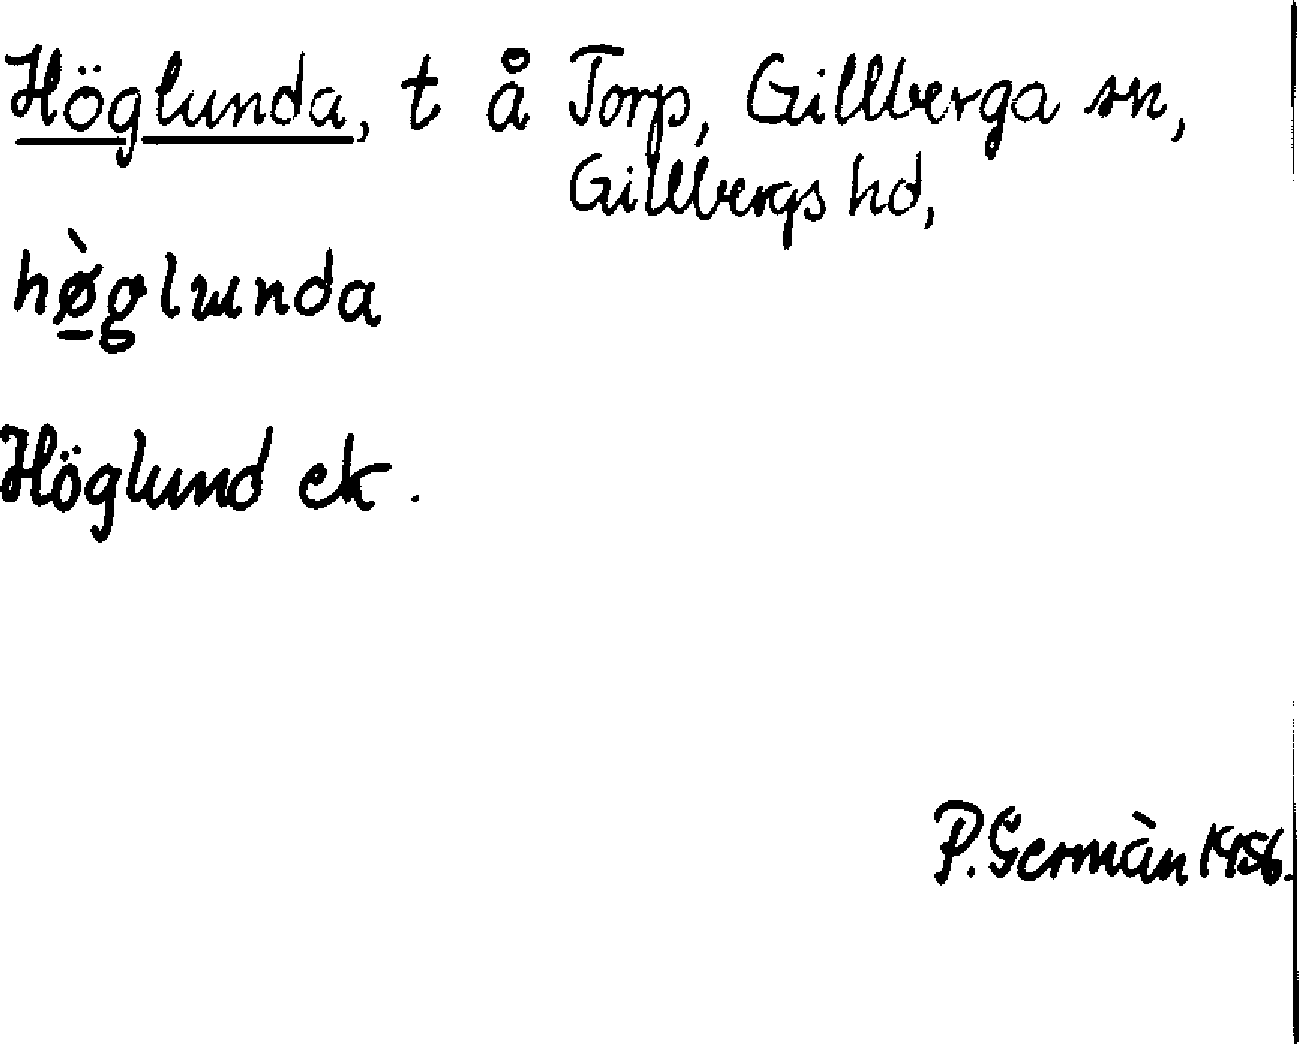 Höglunda, t å Torp, Gillberga sn,
Gillbergs hd,
hø̀glunda
Höglund ek.
P. Germàn 1956.